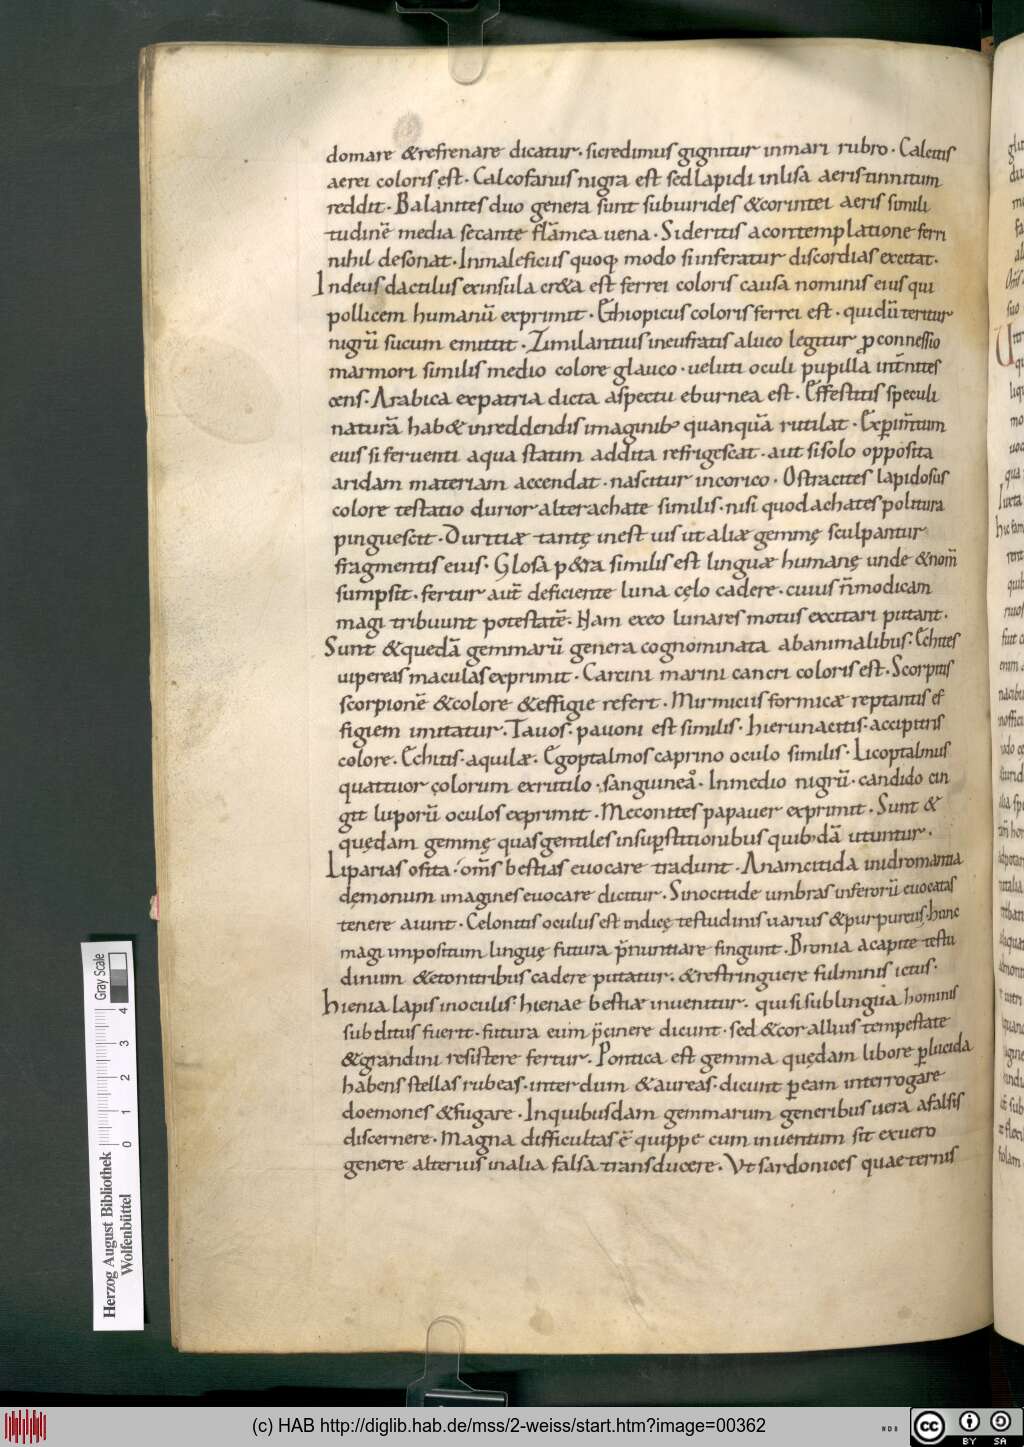 domare &refrenare dicatur. sicredimus gignitur inmari rubro. Calcitis
aerei coloris ęst. Calcofanus nigra est sedlapidi inlisa aeris tinnitum
reddit. Balanites duo genera sunt subuirides &corintei aeris simili
tudinē media secante flāmea uena. Sideritis acontemplatione ferri
nihil desonat. Inmaleficiis quoq; modo siinferatur discordias excitat.
Indeus dactilus exinsula cr&a est ferrei coloris causa nominis eius qui
pollicem humanū exprimit. Ethiopicus coloris ferrei est. quidū teritur
nigrū sucum emittit. Zimilantius ineufratis alueo legitur p̱connessio
marmori similis medio colore glauco. ueluti oculi pupilla int̄nites
cens. Arabica expatria dicta aspectu eburnea est. Effestitis speculi
naturā hab& inreddendis imaginib; quanquā rutilat. Exp̱im̄tum
eius siferuenti aqua statim addita refrigescat. aut sisolo opposita
aridam materiam accendat. nascitur incorico. Ostracites lapidosus
colore testatio durior alterachate similis. nisi quodachates politura
pinguescit. Duritiæ tantę inest uis ut aliæ gemmę sculpantur
fragmentis eius. Glosa p&ra similis est linguæ humanę unde &nom̄
sumpsit. fertur aut̄ deficiente luna cęlo cadere. cuius n̄modicam
magi tribuunt potestatē. Nam exeo lunares motus excitari putant.
Sunt &quedā gemmarū genera cognominata abanimalibus. Echites
uipereas maculas exprimit. Carcini marini cancri coloris est. Scorpitis
scorpionē &colore &effigie refert. Mirmiciis formicæ reptantis ef
figiem imitatur. Tauos. pauoni est similis. hierunacitis. accipitris
colore. Echitis. aquilæ. Egoptalmos caprino oculo similis. Licoptalmus
quattuor colorum exrutilo. sanguinea. Inmedio nigrū. candido cin
git luporū oculos exprimit. Meconites papauer exprimit. Sunt &
quędam gemmę quas gentiles insup̱stitionibus quib;dā utuntur.
Liparias osita. om̄s bestias euocare tradunt. Anamcitida inidromantia
dęmonum imagines euocare dicitur. Sinocitide umbras inferorū euocatas
tenere aiunt. Celonitis oculus est indicę testudinis uarius &purpureus. hunc
magi impositum linguę futura p̄nuntiare fingunt. Bronia acapite testu
dinum &etonitribus cadere putatur. &restringuere fulminis ictus.
hienia lapis inoculis hienae bestiæ inuenitur. quisi sublingua hominis
subditus fuerit. futura eum p̄cinere dicunt. sed &corallius tempestate
&grandini resistere fertur. Pontica est gemma quędam libore p̱lucida
habens stellas rubeas. interdum &aureas. dicunt p̱eam interrogare
doemones &fugare. Inquibusdam gemmarum generibus uera afalsis
discernere. magna difficultas ē quippe cum inuentum sit exuero
genere alterius inalia falsa transducere. Vt sardonices quae ternis
Gray Scale
0 1 2 3 4
Herzog August Bibliothek
Wolfenbüttel
(c) HAB http://diglib.hab.de/mss/2-weiss/start.htm?image=00362
cc BY SA